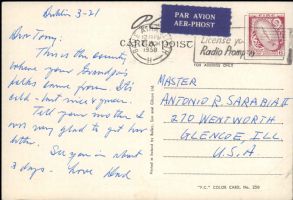 Dublin 3-21
Dear Tony:
This is the country
where your Grandpa's
folks came from. It's
cold - but nice & green.
Tell your mother I
was very glad to get her
letter.
See you in about
3 days - Love Dad
PAR AVION
AER-PHOST
CARTA POIST
License yo
Radio Promp
FOR ADDRESS ONLY
1958
MASTER
ANTONIO R. SARABIA II
270 WENTWORTH
GLENCOE, ILL
U.S.A
"P.C." COLOR CARD, No. 250